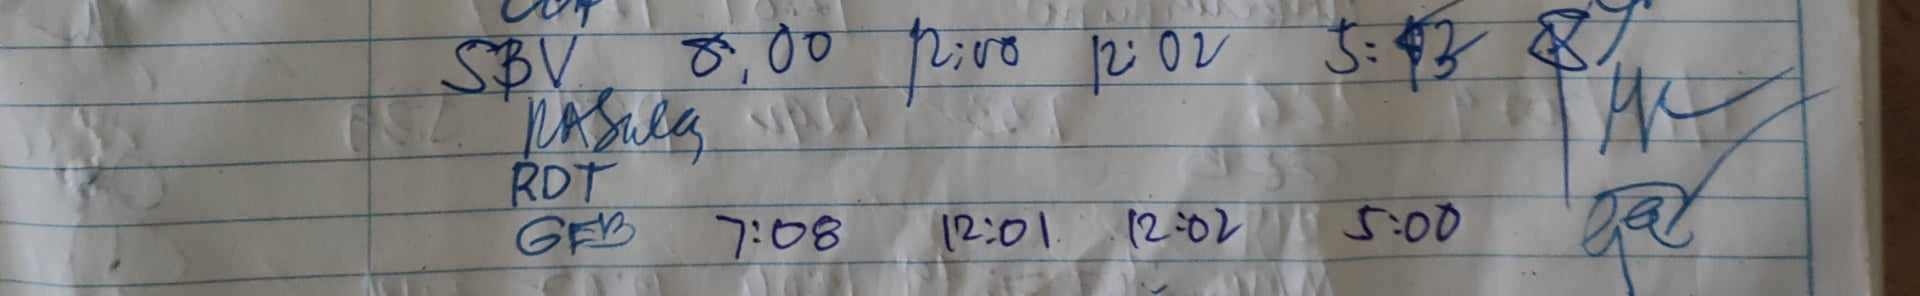 SBV 8:00 12:00 12:02 5:13
RDT
GFB 7:08 12:01 12:02 5:00